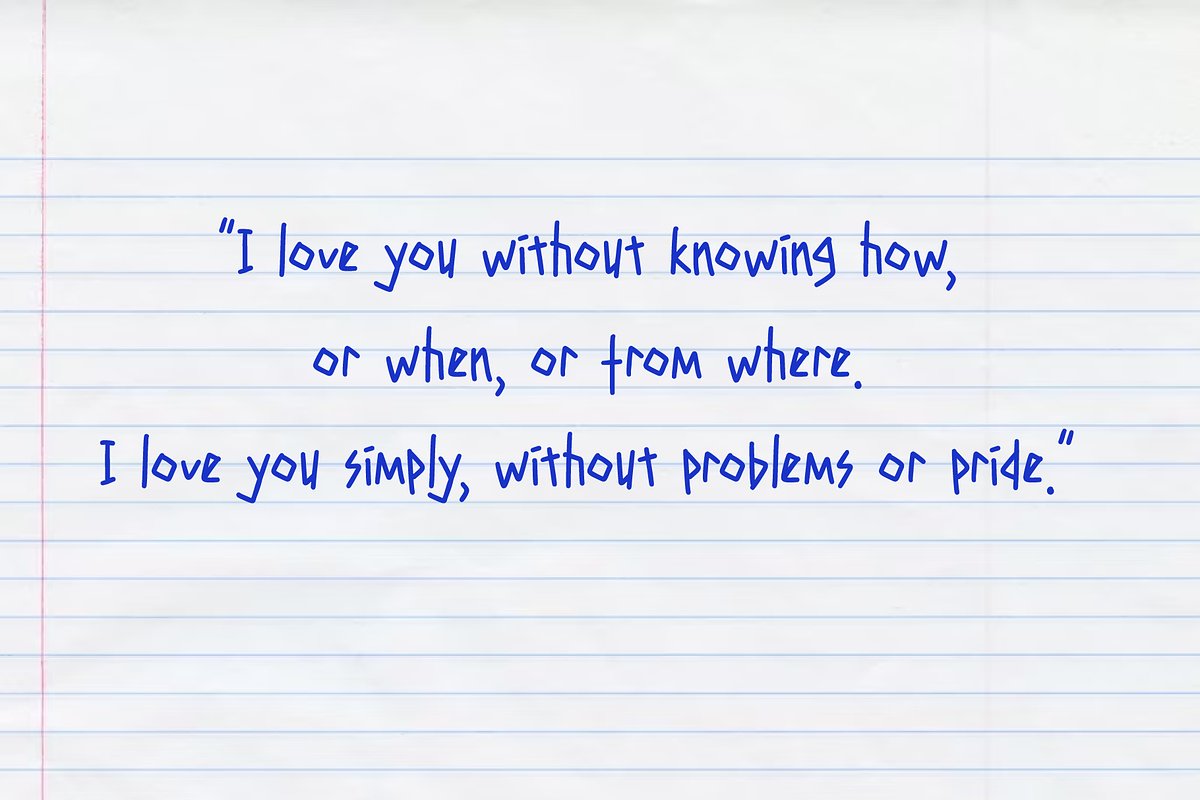 "I love you without knowing how,
or when, or from where.
I love you simply, without problems or pride."